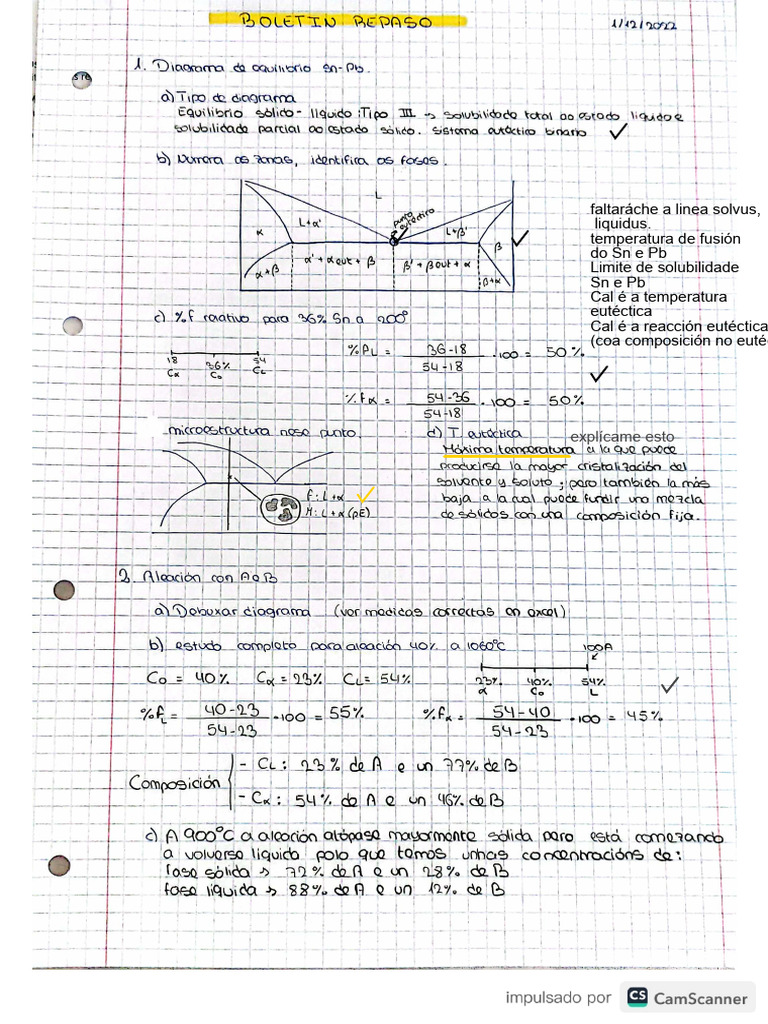 BOLETIN REPASO
1/12/2022
1. Diagrama de equilibrio Sn-Pb.
a) Tipo de diagrama
Equilibrio sólido-líquido: Tipo III → solubilidade total ao estado líquido e
solubilidade parcial ao estado sólido. Sistema eutéctico binario ✓
b) Numera as zonas, identifica as fases.
L
punto eutéctico
L+α'
L+β'
α
β
α+β
α'+αeut+β
β'+βeut+α
β+α
✓
faltaráche a linea solvus,
liquidus.
temperatura de fusión
do Sn e Pb
Limite de solubilidade
Sn e Pb
Cal é a temperatura
eutéctica
Cal é a reacción eutéctica
(coa composición no euté
c) %f relativo para 36% Sn a 200º
18 36% 54
Cα C₀ CL
%FL = 36-18 / 54-18 · 100 = 50%
✓
%Fα = 54-36 / 54-18 · 100 = 50%
microestructura nese punto.
F: L+α ✓
M: L+α (pE)
d) T. eutéctica
explícame esto
Máxima temperatura a la que puede
producirse la mayor cristalización del
solvente y soluto; pero también la más
baja a la cual puede fundir una mezcla
de sólidos con una composición fija.
2. Aleación con A e B
a) Debuxar diagrama (ver medidas correctas en excel)
b) estudo completo para aleación 40% a 1060ºC
100A
C₀ = 40% Cα = 23% CL = 54%
23% 40% 54%
α C₀ L
✓
%fL = 40-23 / 54-23 · 100 = 55%
%fα = 54-40 / 54-23 · 100 = 45%
Composición
- CL: 23% de A e un 77% de B
- Cα: 54% de A e un 46% de B
c) A 900ºC a aleación atópase mayormente sólida pero está comezando
a volverse líquida polo que temos unhas concentracións de:
fase sólida → 72% de A e un 28% de B
fase líquida → 88% de A e un 12% de B
impulsado por CS CamScanner